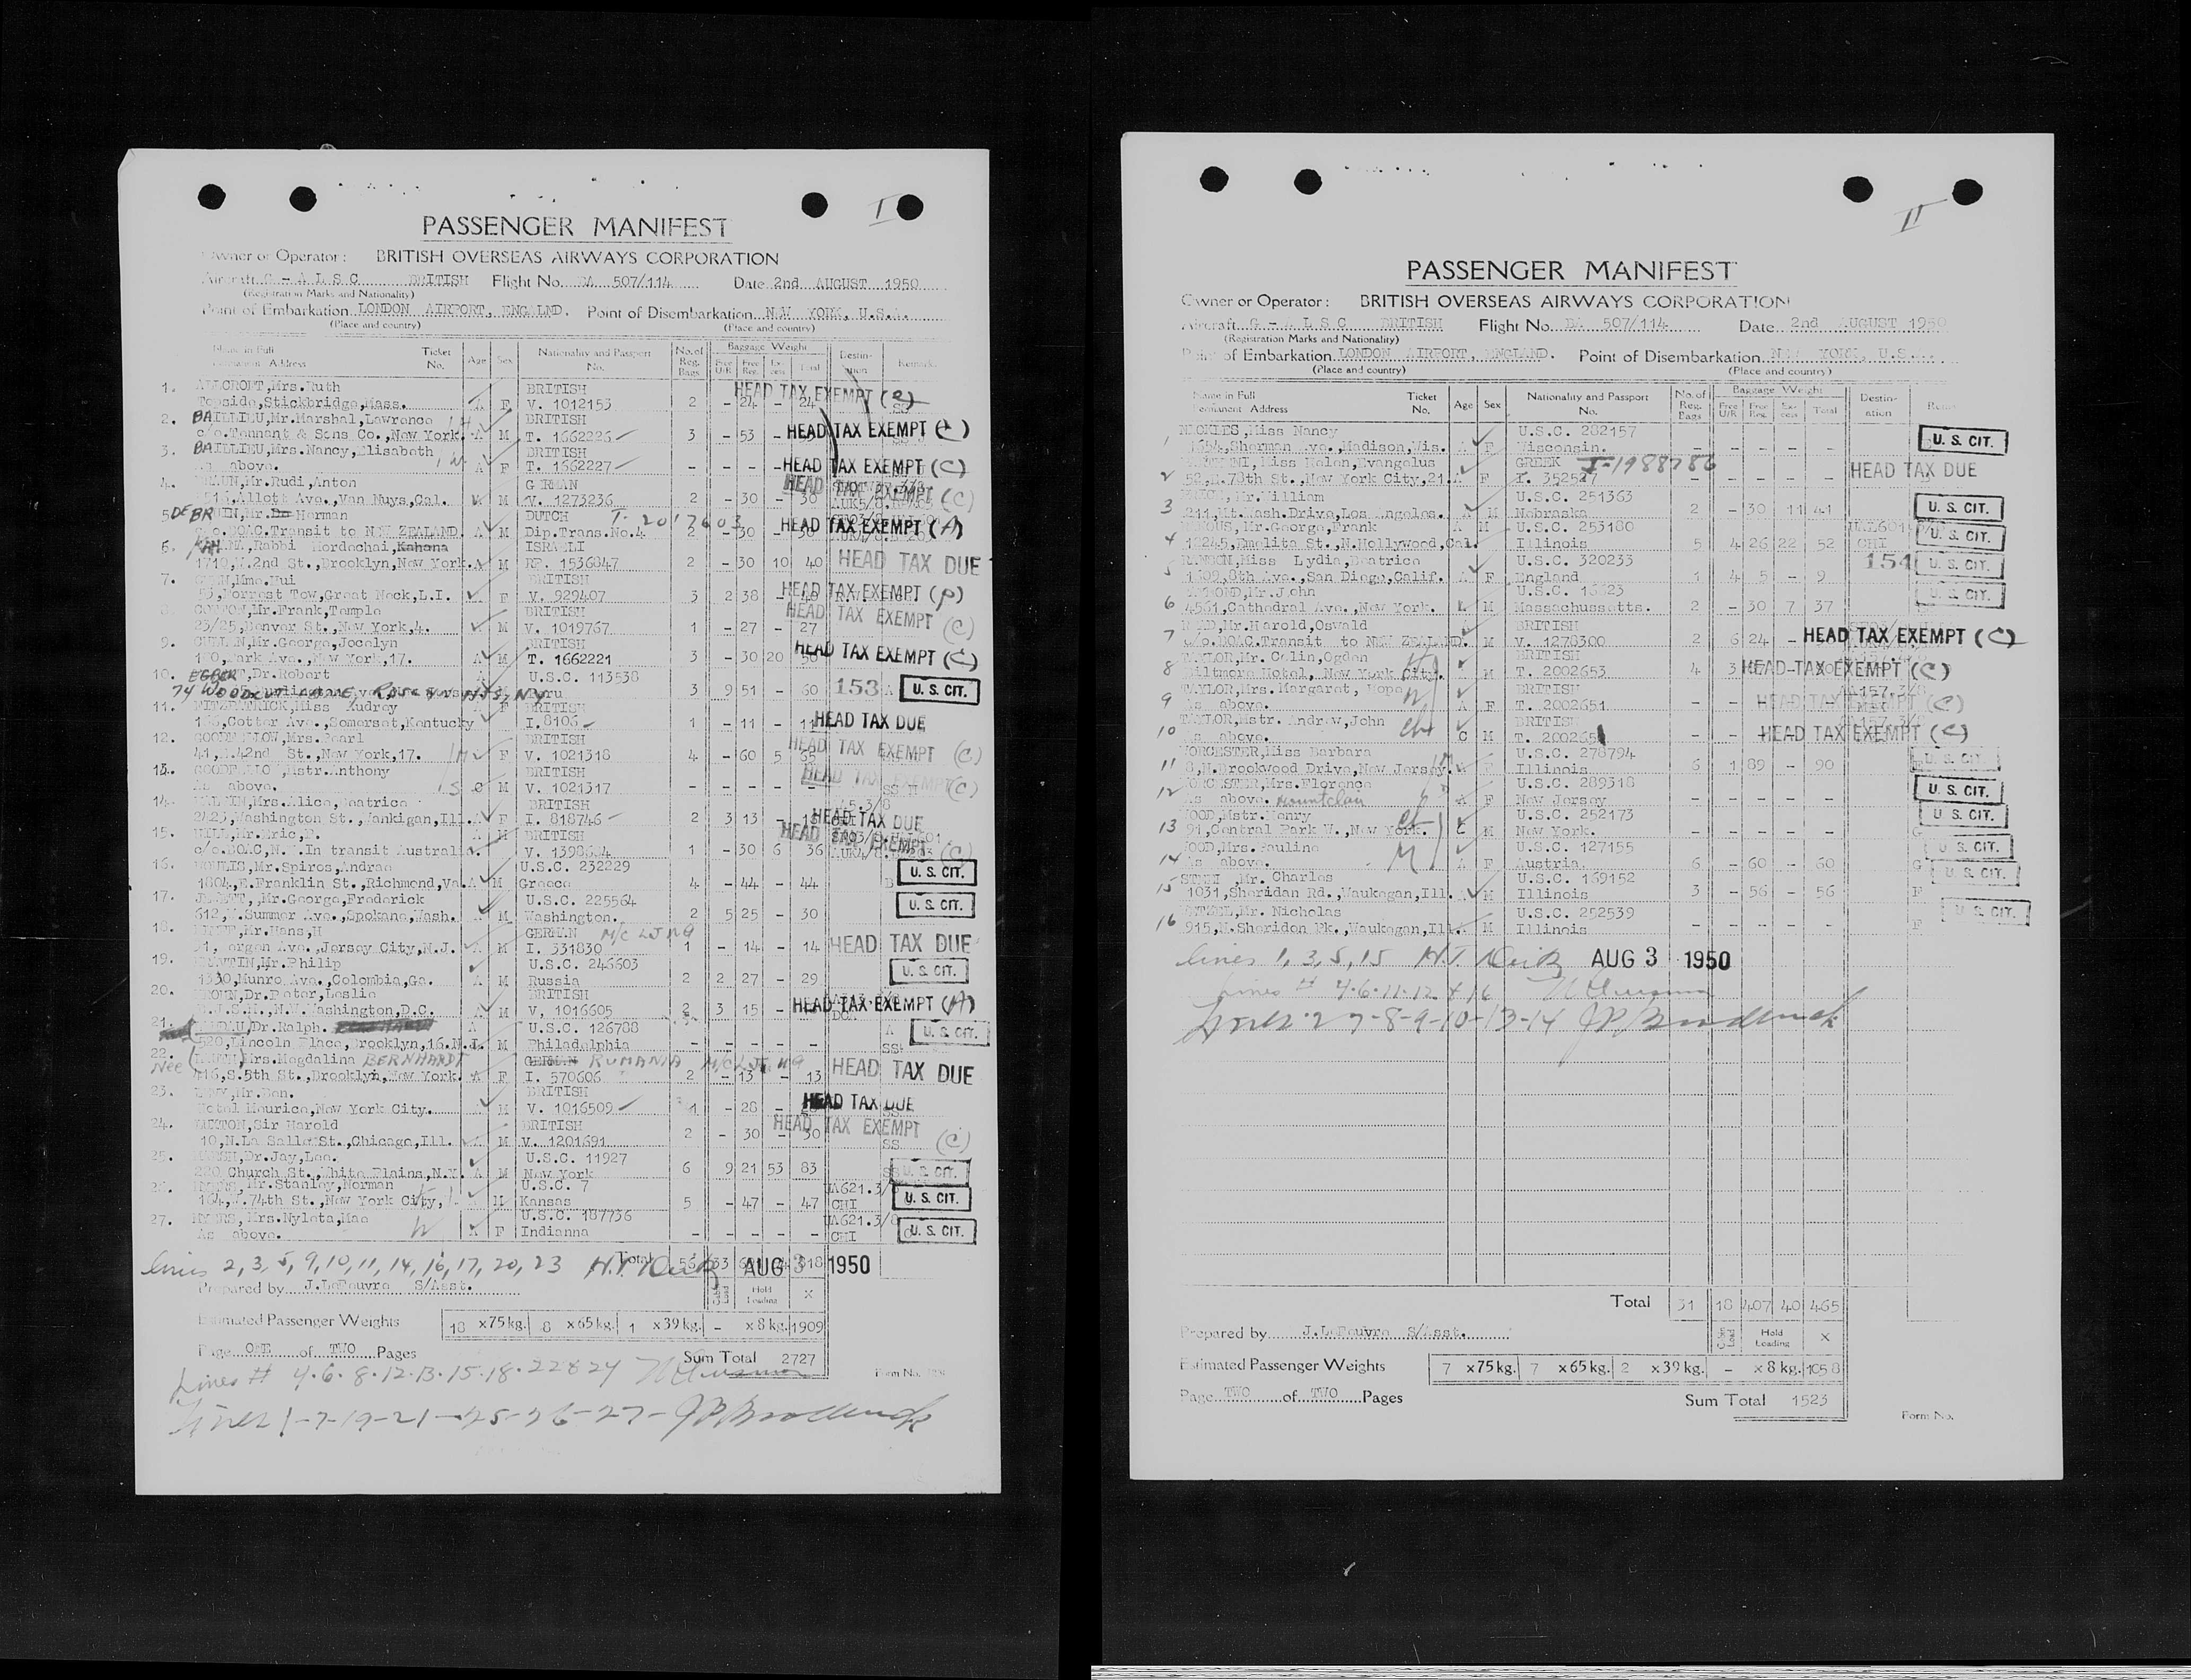 I
PASSENGER MANIFEST
Owner or Operator: BRITISH OVERSEAS AIRWAYS CORPORATION
Aircraft G - A L S C BRITISH Flight No. BA 507/114 Date 2nd AUGUST 1950
(Registration Marks and Nationality)
Point of Embarkation LONDON AIRPORT, ENGLAND. Point of Disembarkation NEW YORK, U.S.A.
(Place and country) (Place and country)
Name in Full Ticket No. Age Sex Nationality and Passport No. No. of Reg. Bags Baggage Weight Free U/R Free Reg. Excess Total Destination Remarks
Permanent Address
1. Mrs.Ruth BRITISH HEAD TAX EXEMPT
Topside,Stickbridge,Mass. A F V. 1012153 2 - 24 - 24
2. BAILLIEU,Mr.Marshal,Lawrence BRITISH
c/o.Tennant & Sons Co.,New York. A M T. 1662226 3 - 53 - HEAD TAX EXEMPT (C)
3. BAILLIEU,Mrs.Nancy,Elisabeth BRITISH
As above. A F T. 1662227 - - - - HEAD TAX EXEMPT (C)
4. Mr.Rudi,Anton GERMAN
Allott Ave.,Van Nuys,Cal. M V. 1273236 2 - 30 - 30 HEAD TAX EXEMPT (C)
5. DE BRUIN,Mr. Herman DUTCH T. 2017603
c/o.BOAC.Transit to NEW ZEALAND. A M Dip.Trans.No.4 2 - 30 - 30 HEAD TAX EXEMPT (A)
6. Rabbi Mordachai,Kahana ISRAELI
1710, 42nd St.,Brooklyn,New York. A M RP. 1536847 2 - 30 10 40 HEAD TAX DUE
7. Mme.Hui BRITISH
Forrest Tow,Great Neck,L.I. F V. 929407 3 2 38 - 40 HEAD TAX EXEMPT (P)
8. Mr.Frank,Temple BRITISH
23/25,Beaver St.,New York,4. M V. 1019767 1 - 27 - 27 HEAD TAX EXEMPT (C)
9. CULLEN,Mr.George,Jocelyn BRITISH
Park Ave.,New York,17. A M T. 1662221 3 - 30 20 50 HEAD TAX EXEMPT (C)
10. Dr.Robert U.S.C. 113538
74 WOODCUT LANE, Peru 3 9 51 - 60 153 U. S. CIT.
11. FITZPATRICK,Miss Audrey F BRITISH
Cotter Ave.,Somerset,Kentucky I.8106 1 - 11 - 11 HEAD TAX DUE
12. GOODFELLOW,Mrs.Pearl BRITISH
41,E.42nd St.,New York,17. F V. 1021318 4 - 60 5 65 HEAD TAX EXEMPT (C)
13. GOODFELLOW,Mstr.Anthony BRITISH
As above. C M V. 1021317 - - - - HEAD TAX EXEMPT (C)
14. Mrs.Alice,Beatrice BRITISH
2423,Washington St.,Wankigan,Ill. A F I. 818746 2 3 13 - HEAD TAX DUE
15. HILL,Mr.Eric,E. A M BRITISH
c/o.BOAC,N.Y.In transit Australia. 1 - 30 6 36 HEAD TAX EXEMPT (C)
16. Mr.Spiros,Andrea U.S.C. 232229
1804,E.Franklin St.,Richmond,Va. A M Greece 4 - 44 - 44 U. S. CIT.
17. Mr.George,Frederick U.S.C. 225564
612,W.Sumner Ave.,Spokane,Wash. A M Washington. 2 5 25 - 30 U. S. CIT.
18. Mr.Hans,H GERMAN
Ave.,Jersey City,N.J. A M I. 331830 1 - 14 - 14 HEAD TAX DUE
19. Mr.Philip U.S.C. 246603
1330,Munro Ave.,Colombia,Ga. A M Russia 2 2 27 - 29 U. S. CIT.
20. Dr.Peter,Leslie BRITISH
B.J.S.M.,N.W.Washington,D.C. A M V. 1016605 2 3 15 - HEAD TAX EXEMPT (A)
21. Dr.Ralph. A U.S.C. 126788
Lincoln Place,Brooklyn,16.N.Y. M Philadelphia - - - - - U. S. CIT.
22. Mrs.Magdalina BERNHARDT GERMAN RUMANIA
Nee 416,S.5th St.,Brooklyn,New York. A F I. 570606 2 - 13 - 13 HEAD TAX DUE
23. LEVY,Mr.Ben. BRITISH
Hotel Maurice,New York City. A M V. 1016509 1 - 28 - HEAD TAX DUE
24. Sir Harold BRITISH
10,N.La Salle St.,Chicago,Ill. M V. 1201691 2 - 30 - 30 HEAD TAX EXEMPT (C)
25. Dr.Jay,Lee. U.S.C. 11927
220 Church St.,White Plains,N.Y. A M New York 6 9 21 53 83 U. S. CIT.
26. MYERS, Mr.Stanley,Norman U.S.C. 7
74th St.,New York City, M Kansas 5 - 47 - 47 UA621.3/8 CHI U. S. CIT.
27. MYERS, Mrs.Nyleta,Mae U.S.C. 187736
As above. A F Indianna - - - - - UA621.3/8 CHI U. S. CIT.
lines 2,3,5,9,10,11,14,16,17,20,23 Total 56 33 AUG 3 1950
Prepared by J.LeFeuvre S/Asst. Cabin Load Hold Loading X
Estimated Passenger Weights 18 x75kg. 8 x65kg. 1 x39kg. - x8kg. 1909
Page ONE of TWO Pages Sum Total 2727
Form No.
Lines # 4.6.8.12.13.15.18.22&24
Lines 1-7-19-21-25-26-27-
II
PASSENGER MANIFEST
Owner or Operator: BRITISH OVERSEAS AIRWAYS CORPORATION
Aircraft G - A L S C BRITISH Flight No. BA 507/114 Date 2nd AUGUST 1950
(Registration Marks and Nationality)
Point of Embarkation LONDON AIRPORT, ENGLAND. Point of Disembarkation NEW YORK, U.S.A.
(Place and country) (Place and country)
Name in Full Ticket No. Age Sex Nationality and Passport No. No. of Reg. Bags Baggage Weight Free U/R Free Reg. Excess Total Destination
Permanent Address
1 Miss Nancy U.S.C. 282157
1654,Sherman Ave.,Madison,Wis. A F Wisconsin. - - - - - U. S. CIT.
2 Miss Helen,Evangelus GREEK I-1988786
52,E.78th St.,New York City,21. A F - - - - - HEAD TAX DUE
3 Mr.William U.S.C. 251363
Mt.Wash.Drive,Los Angeles. M Nebraska 2 - 30 11 41 U. S. CIT.
4 Mr.George,Frank A M U.S.C. 253180
12245,Emelita St.,N.Hollywood,Cal. Illinois 5 4 26 22 52 CHI U. S. CIT.
5 Miss Lydia,Beatrice U.S.C. 320233
8th Ave.,San Diego,Calif. A F England 1 4 5 - 9 154 U. S. CIT.
6 Mr.John U.S.C.
4561,Cathedral Ave.,New York. M Massachussetts. 2 - 30 7 37 U. S. CIT.
7 Mr.Harold,Oswald BRITISH
c/o.BOAC.Transit to NEW ZEALAND. M V. 1278300 2 6 24 - HEAD TAX EXEMPT (C)
8 TAYLOR,Mr. Colin,Ogden BRITISH
Biltmore Hotel, New York City. M T. 2002653 4 3 HEAD TAX EXEMPT (C)
9 TAYLOR,Mrs.Margaret, Hope BRITISH
As above. A F T. 2002651 - - HEAD TAX EXEMPT (C)
10 TAYLOR,Mstr. Andrew,John BRITISH
As above. C M - - HEAD TAX EXEMPT (C)
11 WORCESTER,Miss Barbara U.S.C. 278794
8,N.Brookwood Drive,New Jersey. Illinois 6 1 89 - 90 U. S. CIT.
12 WORCESTER,Mrs.Florence U.S.C. 289318
As above. A F New Jersey - - - - - U. S. CIT.
13 WOOD,Mstr.Henry U.S.C. 252173
91,Central Park W.,New York. C M New York. - - - - - U. S. CIT.
14 WOOD,Mrs.Pauline U.S.C. 127155
As above. A F Austria. 6 - 60 - 60 U. S. CIT.
15 Mr. Charles U.S.C. 169152
1031,Sheridan Rd.,Waukegan,Ill. M Illinois 3 - 56 - 56 U. S. CIT.
16 Mr. Nicholas U.S.C. 252539
915,N.Sheridan Rk.,Waukegan,Ill. M Illinois - - - - - U. S. CIT.
lines 1,3,5,15 AUG 3 1950
Lines # 4.6.11.12 & 16
Lines 2 7-8-9-10-13-14
Total 31 18 407 40 465
Prepared by J.LeFeuvre S/Asst. Cabin Load Hold Loading X
Estimated Passenger Weights 7 x75kg. 7 x65kg. 2 x39kg. - x8kg. 1058
Page TWO of TWO Pages Sum Total 1523
Form No.